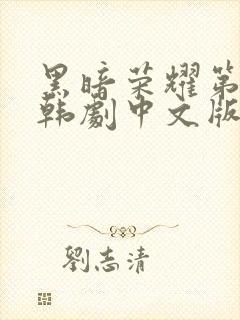 黑暗荣耀第
韩劇中文版
劉志清